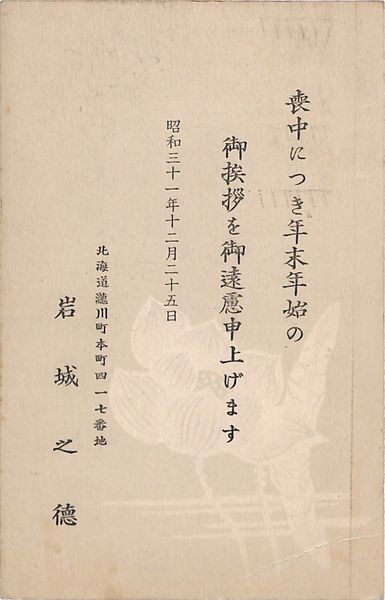 喪中につき年末年始の
御挨拶を御遠慮申上げます
昭和三十一年十二月二十五日
北海道瀧川町本町四一七番地
岩城之德